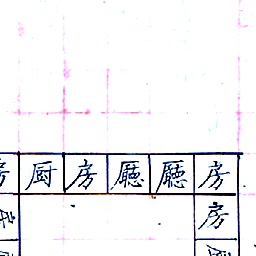 房厨房廳廳房
房